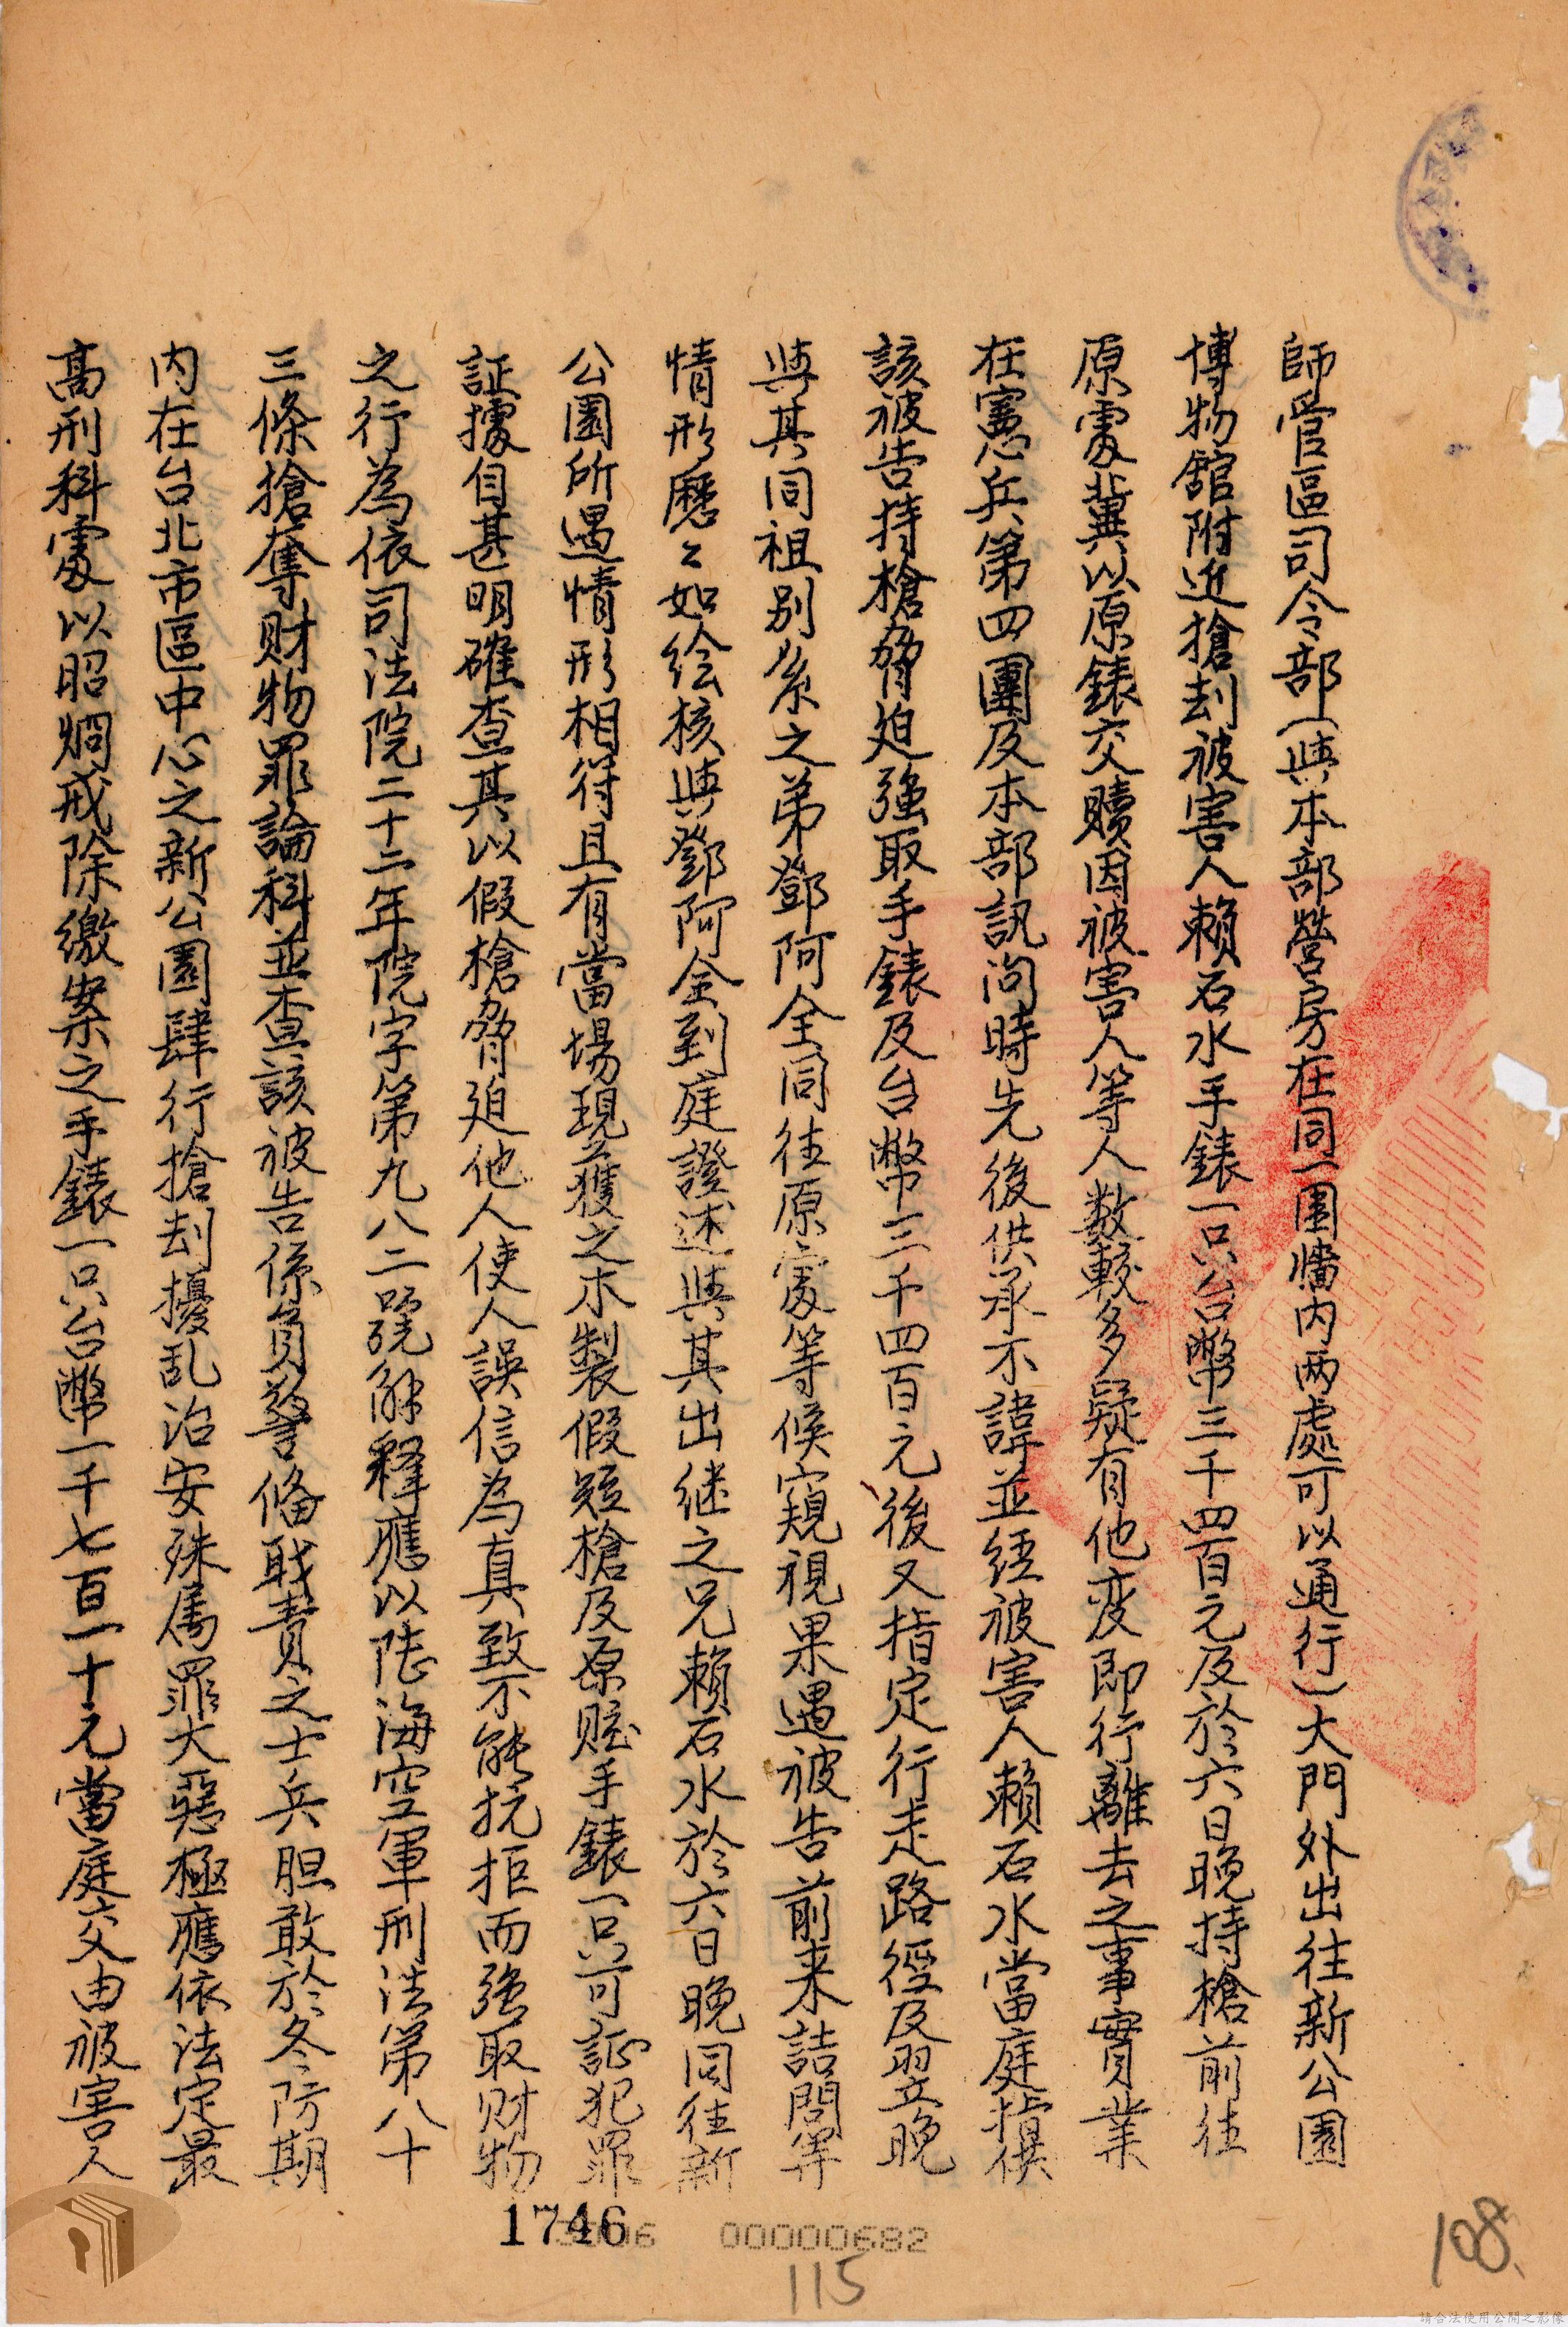 師管區司令部(與本部營房在同一圍墻内两處可以通行)大門外出往新公園
博物舘附近搶刦被害人賴石水手錶一只台幣三千四百元及於六日晚持槍前往
原處冀以原錶交贖因被害人等人数較多疑有他变即行離去之事實業
在憲兵第四團及本部訊问時先後供承不諱並經被害人賴石水當庭指供
該被告持槍脅廹強取手錶及台幣三千四百元後又指定行走路徑及翌晚
與其同祖别系之弟鄧阿全同往原處等候窺視果遇被告前来詰問等
情形歷々如绘核與鄧阿金到庭證述與其出继之兄賴石水於六日晚同往新
公園所遇情形相符且有當場現獲之木製假短槍及原賍手錶一只可証犯罪
証據自甚明確查其以假槍脅廹他人使人誤信為真致不能抗拒而強取财物
之行為依司法院二十二年院字第九八二號解释應以陸海空軍刑法第八十
三條搶奪财物罪論科並查該被告係負警俻戝責之士兵胆敢於冬防期
内在台北市區中心之新公園肆行搶刦擾乱治安殊属罪大惡極應依法定最
高刑科處以昭烱戒除繳案之手錶一只台幣一千七百一十元當庭交由被害人
1746
00000682
115
108
請合法使用公開之影像